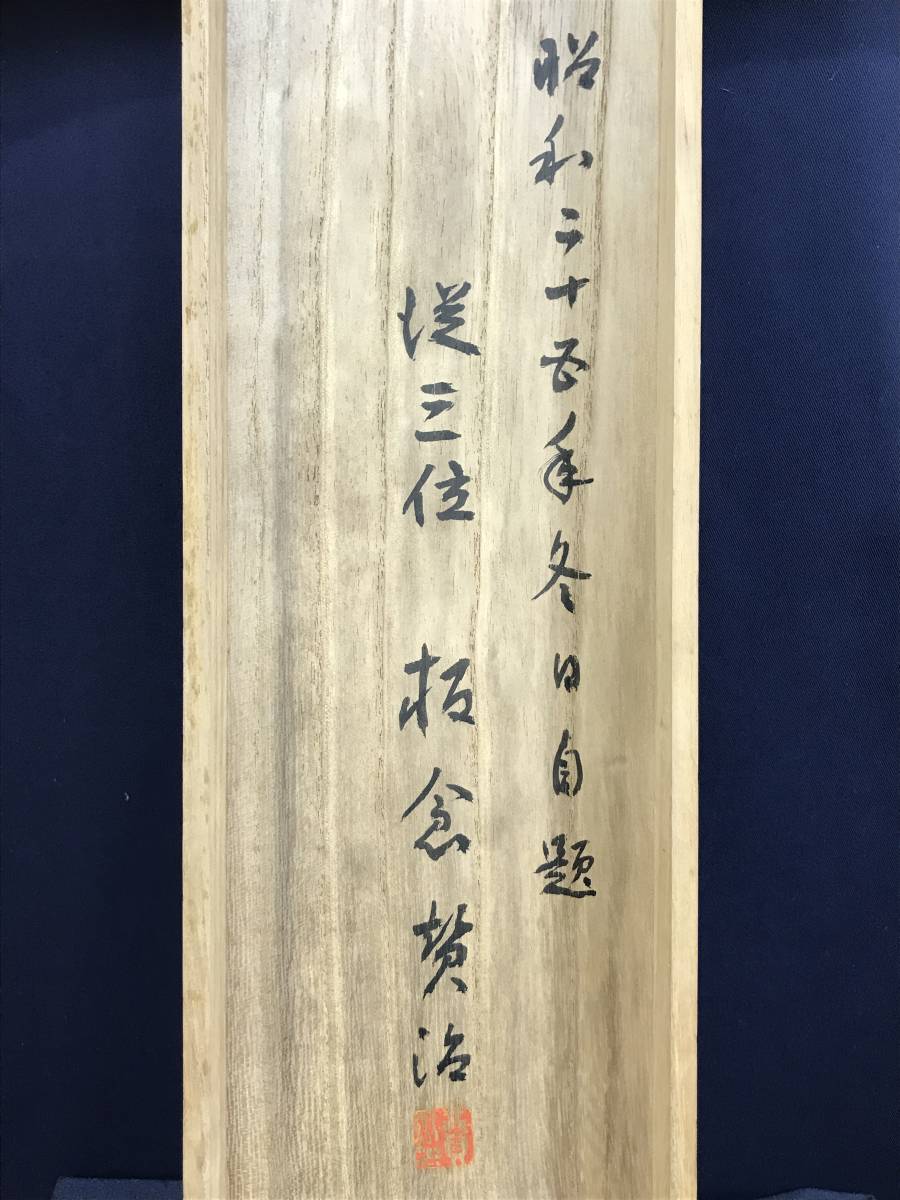 昭和二十五年冬日自題
従三位 板倉賛治